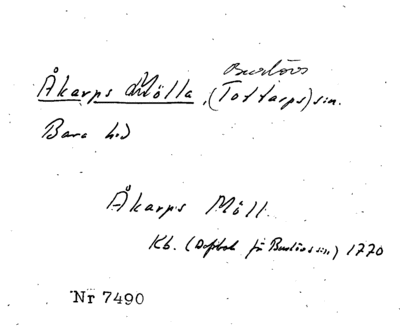 Burlövs
Åkarps Mölla, (Tottarps) sn.
Bara hd
Åkarps Möll
Kb. (Dopbok för Burlövs sn) 1770
Nr 7490